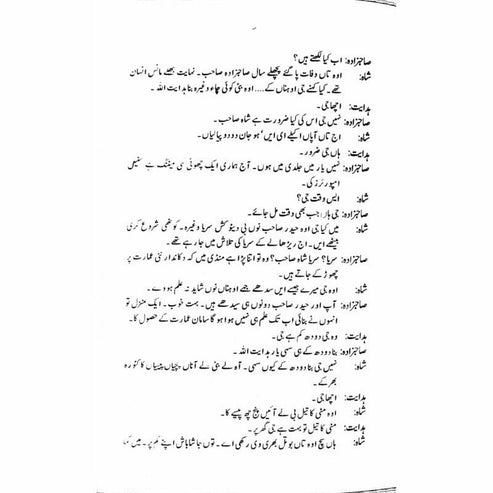 صاحبزادہ: اب کیا لکھتے ہیں؟
شاہ: اوہ تاں وفات پا گئے پچھلے سال صاحبزادہ صاحب۔ نہایت بھلے مانس انسان
تھے۔ کیا کہنے جی اوہناں کے.... اوہ بئی کوئی چاء وغیرہ بنا ہدایت اللہ۔
ہدایت: اچھا جی۔
صاحبزادہ: نہیں جی اس کی کیا ضرورت ہے شاہ صاحب۔
شاہ: اج تاں آپاں اکیلے ای ایں' ہو جان دو دو پیالیاں۔
ہدایت: ہاں جی ضرور۔
صاحبزادہ: نہیں یار میں جلدی میں ہوں۔ آج ہماری ایک چھوٹی سی میٹنگ ہے سٹیل
امپورٹرز کی۔
شاہ: ایس وقت جی؟
صاحبزادہ: جی ہاں جب بھی وقت مل جائے۔
شاہ: میں کیا جی اوہ حیدر صاحب نوں بی دینو کش سریا وغیرہ۔ کوٹھی شروع کری
بیٹھے ایں۔ اج ریڑھالے کے سریا کی تلاش میں جا رہے تھے۔
صاحبزادہ: سریا؟ سریا شاہ صاحب؟ وہ تو اتنا پڑا ہے منڈی میں کہ دکاندار نئی عمارت پر
چھوڑ کے جاتے ہیں۔
شاہ: اوہ جی میرے جیسے ایں سدھے جیسے اوہناں نوں شاید نہ علم ہووے۔
صاحبزادہ: آپ اور حیدر صاحب دونوں ہی سیدھے ہیں۔ بہت خوب۔ ایک منزل تو
انہوں نے بنا لی اب تک علم ہی نہیں ہوا ہو گا سامان عمارت کے حصول کا۔
ہدایت: وہ جی دودھ کم ہے جی۔
صاحبزادہ: بنا دودھ کے ہی سہی یار ہدایت اللہ۔
شاہ: نہیں جی بنا دودھ کے کیوں سہی۔ آہ لے بئی لے آ تاں پیسیاں کا کٹورہ
بھر کے۔
ہدایت: اچھا جی۔
شاہ: اوہ مٹی کا تیل بی لے آئیں پنج چھ پیسے کا۔
ہدایت: مٹی کا تیل تو بہت ہے جی گھر پر۔
شاہ: ہاں سچ اوہ تاں بوتل بھری وی رکھی اے۔ توں جا شاباش اپنے کم پر۔ میں